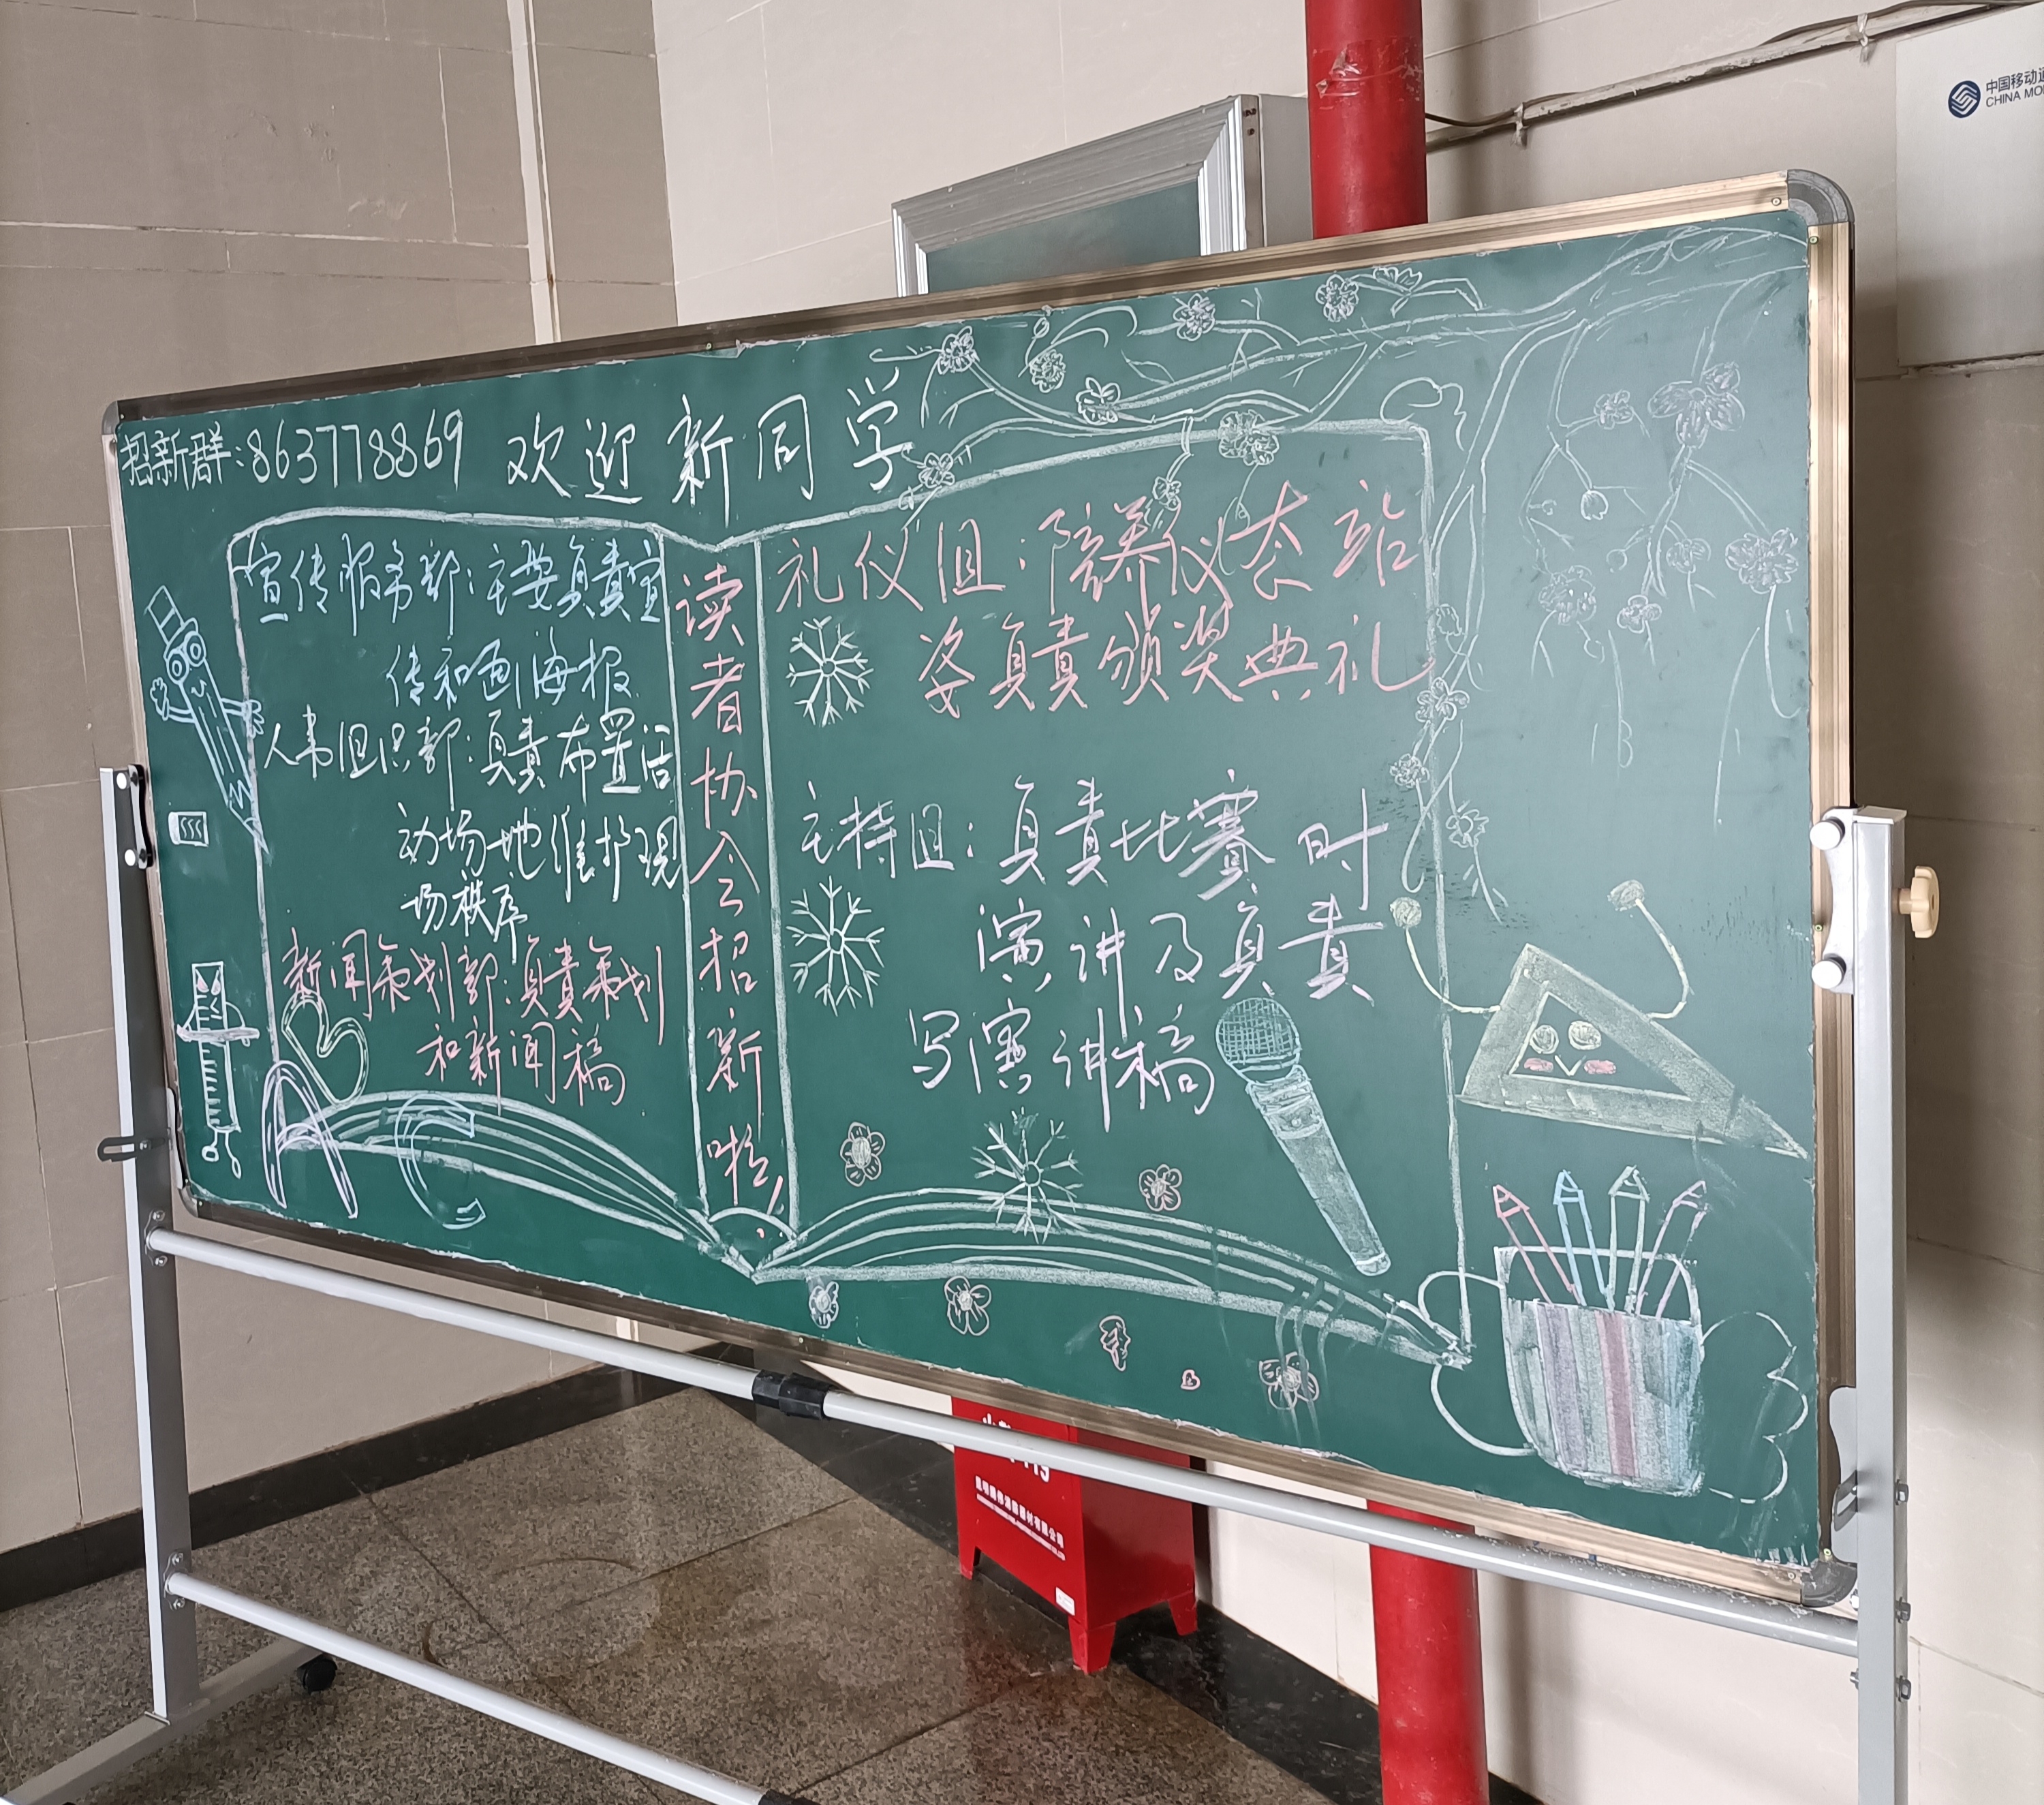 招新群:863778869 欢迎新同学
宣传服务部:主要负责宣
传和画海报
人事组织部:负责布置活
动场地维护现
场秩序
新闻策划部:负责策划
和新闻稿
A B C
读者协会招新啦!
礼仪组:培养仪态站
姿负责颁奖典礼
主持组:负责比赛时
演讲及负责
写演讲稿
中国移动通
CHINA MO